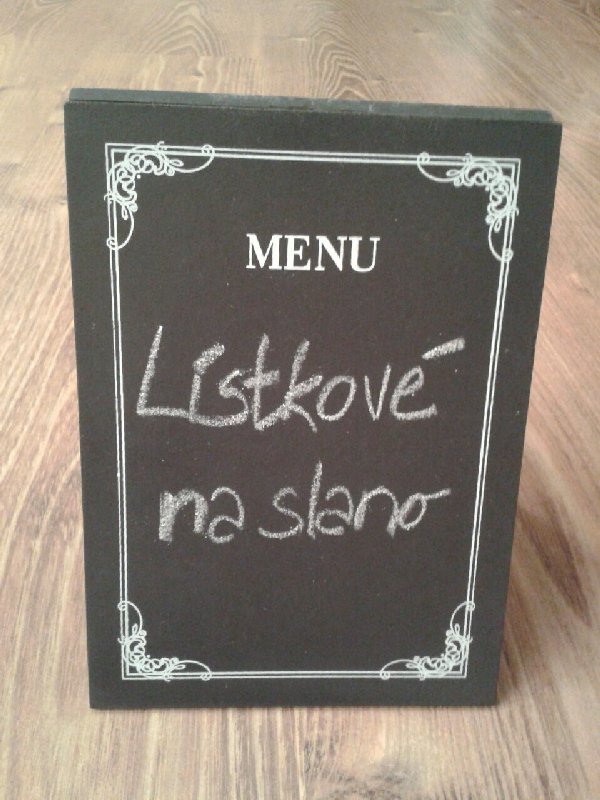 MENU
Lístkové
na slano